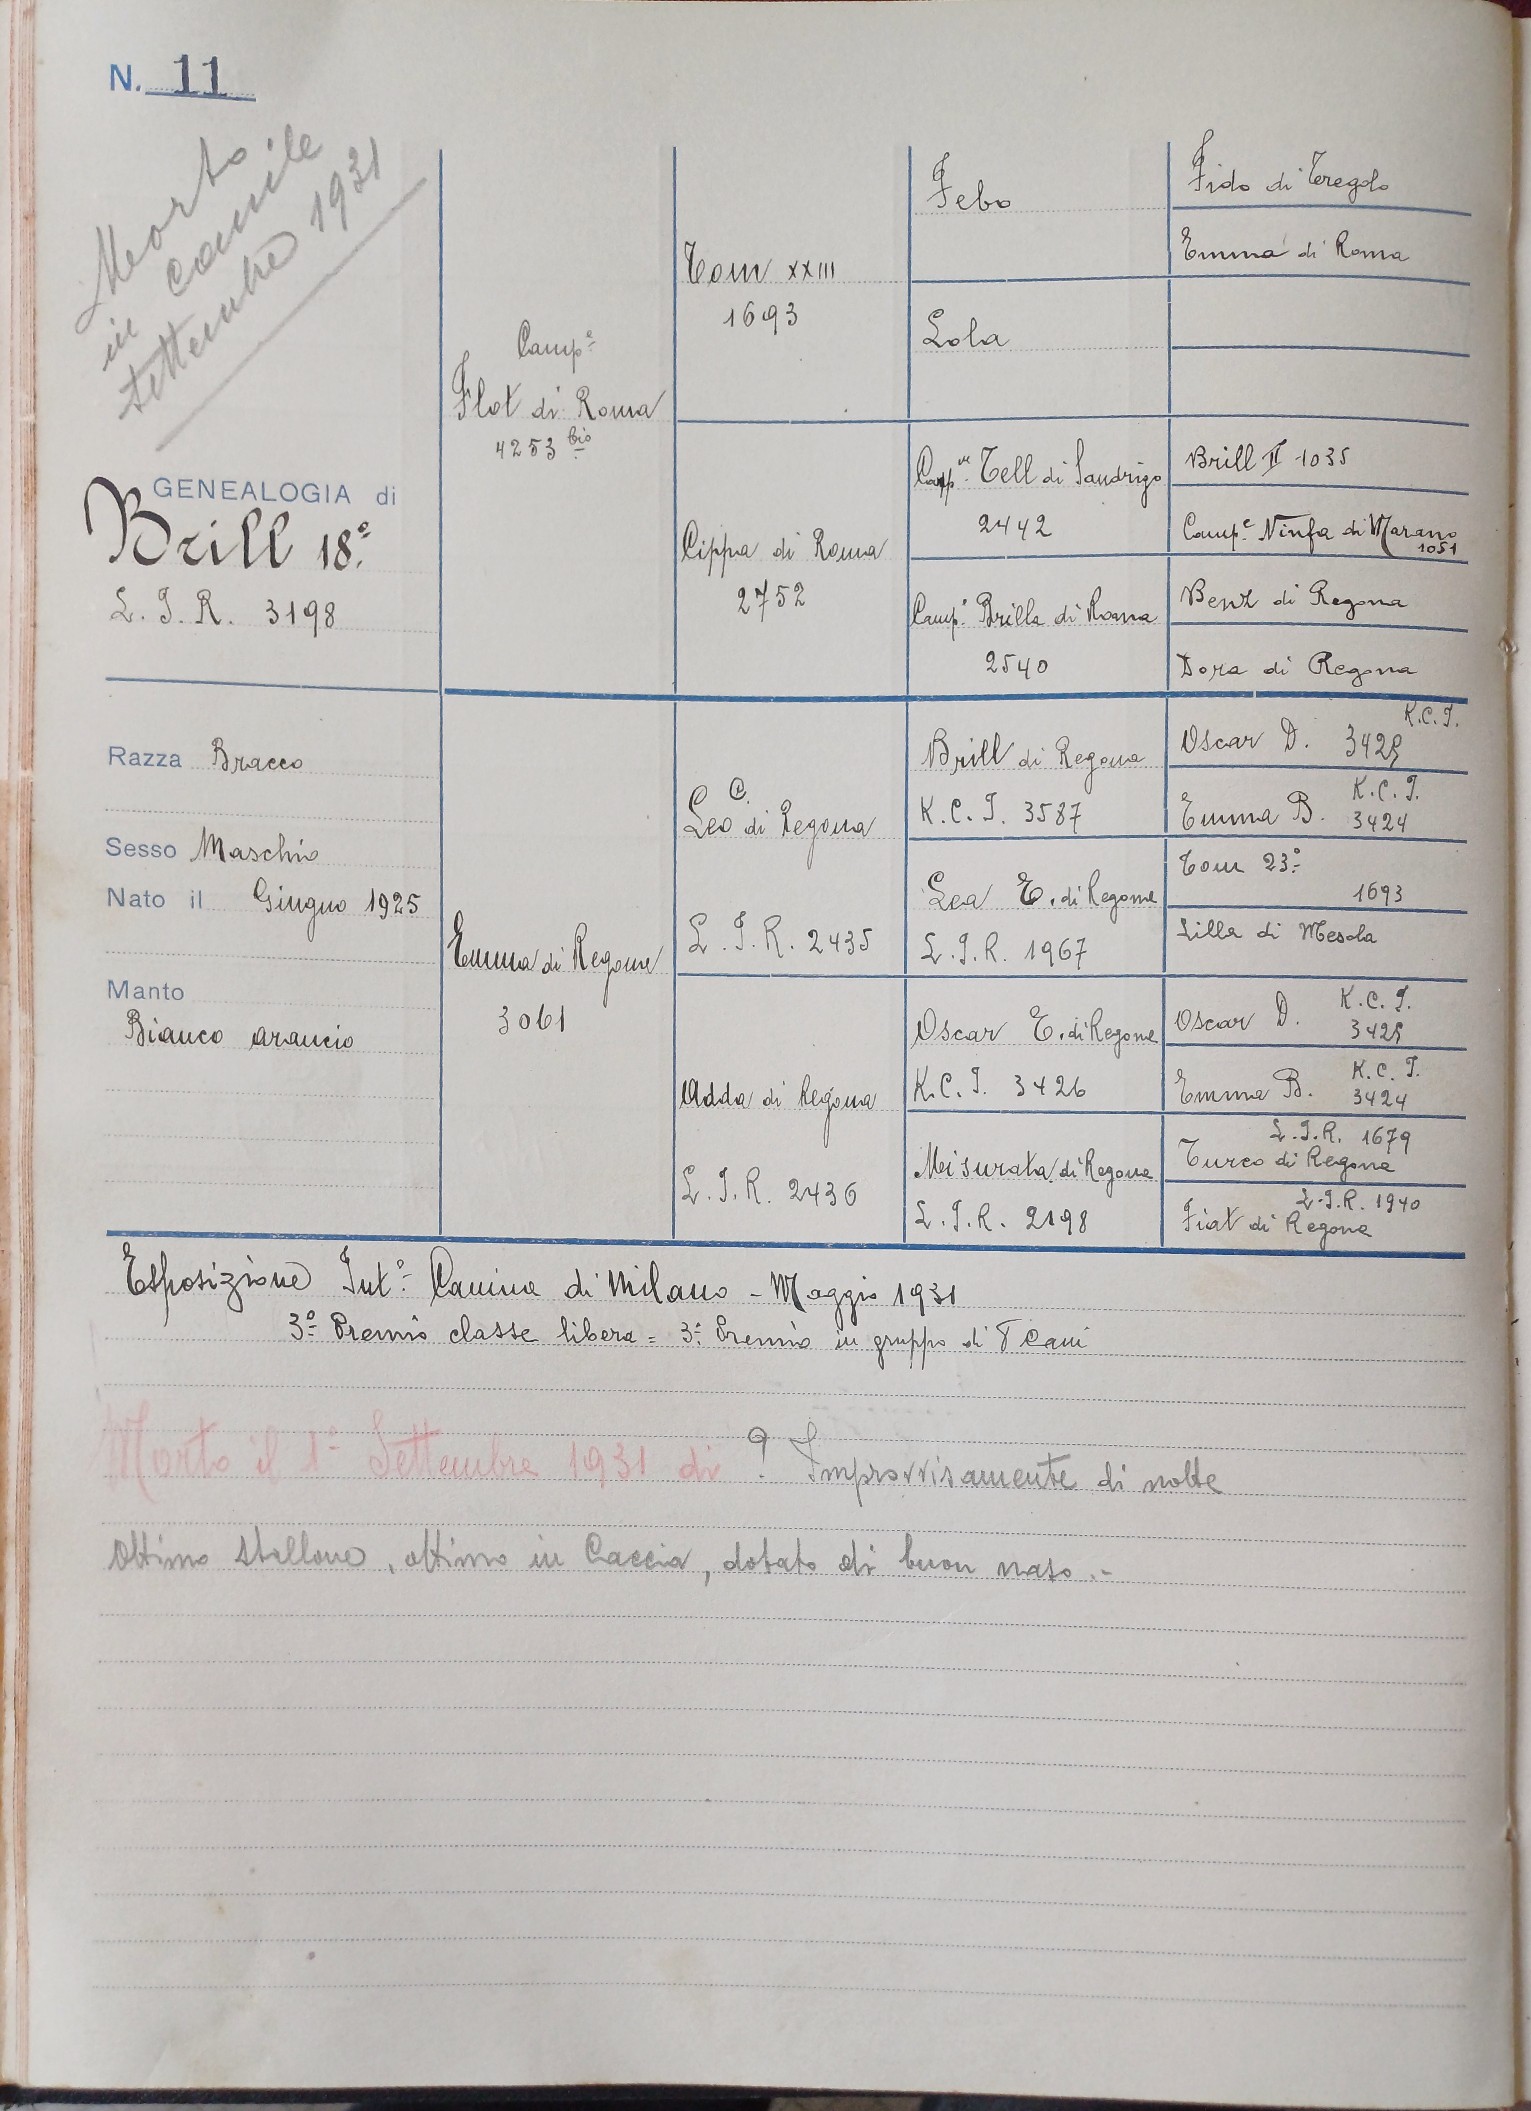 N. 11
Morto
in canile
settembre 1931
GENEALOGIA di
Brill 18º
L. I. R. 3198
Razza Bracco
Sesso Maschio
Nato il Giugno 1925
Manto
Bianco arancio
Campº
Flot di Roma
4253 bis
Emma di Regona
3061
Tom XXIII
1693
Cippa di Roma
2752
Leo C. di Regona
L. I. R. 2435
Adda di Regona
L. I. R. 2436
Febo
Lola
Tell di Sandrigo
2442
Camp. Brilla di Roma
2540
Brill di Regona
K. C. I. 3587
Lea T. di Regona
L. I. R. 1967
Oscar T. di Regona
K. C. I. 3426
Misurata di Regona
L. I. R. 2198
Fido di Teregolo
Emma di Roma
Brill II 1035
Campº Ninfa di Marano
1051
Benz di Regona
Dora di Regona
K.C.I.
Oscar D. 3425
K. C. I.
Emma B. 3424
Tom 23º
1693
Lilla di Mesola
K. C. I.
Oscar D. 3425
K. C. I.
Emma B. 3424
L. I. R. 1679
Turco di Regona
L. I. R. 1940
Fiat di Regona
Esposizione Intº Canina di Milano - Maggio 1931
3º Premio classe libera = 3º Premio in gruppo di cani
Morto il 1º Settembre 1931 di ? Improvvisamente di notte
Ottimo stallone, ottimo in Caccia, dotato di buon naso.-